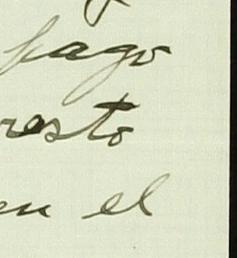 pago
resto
en el